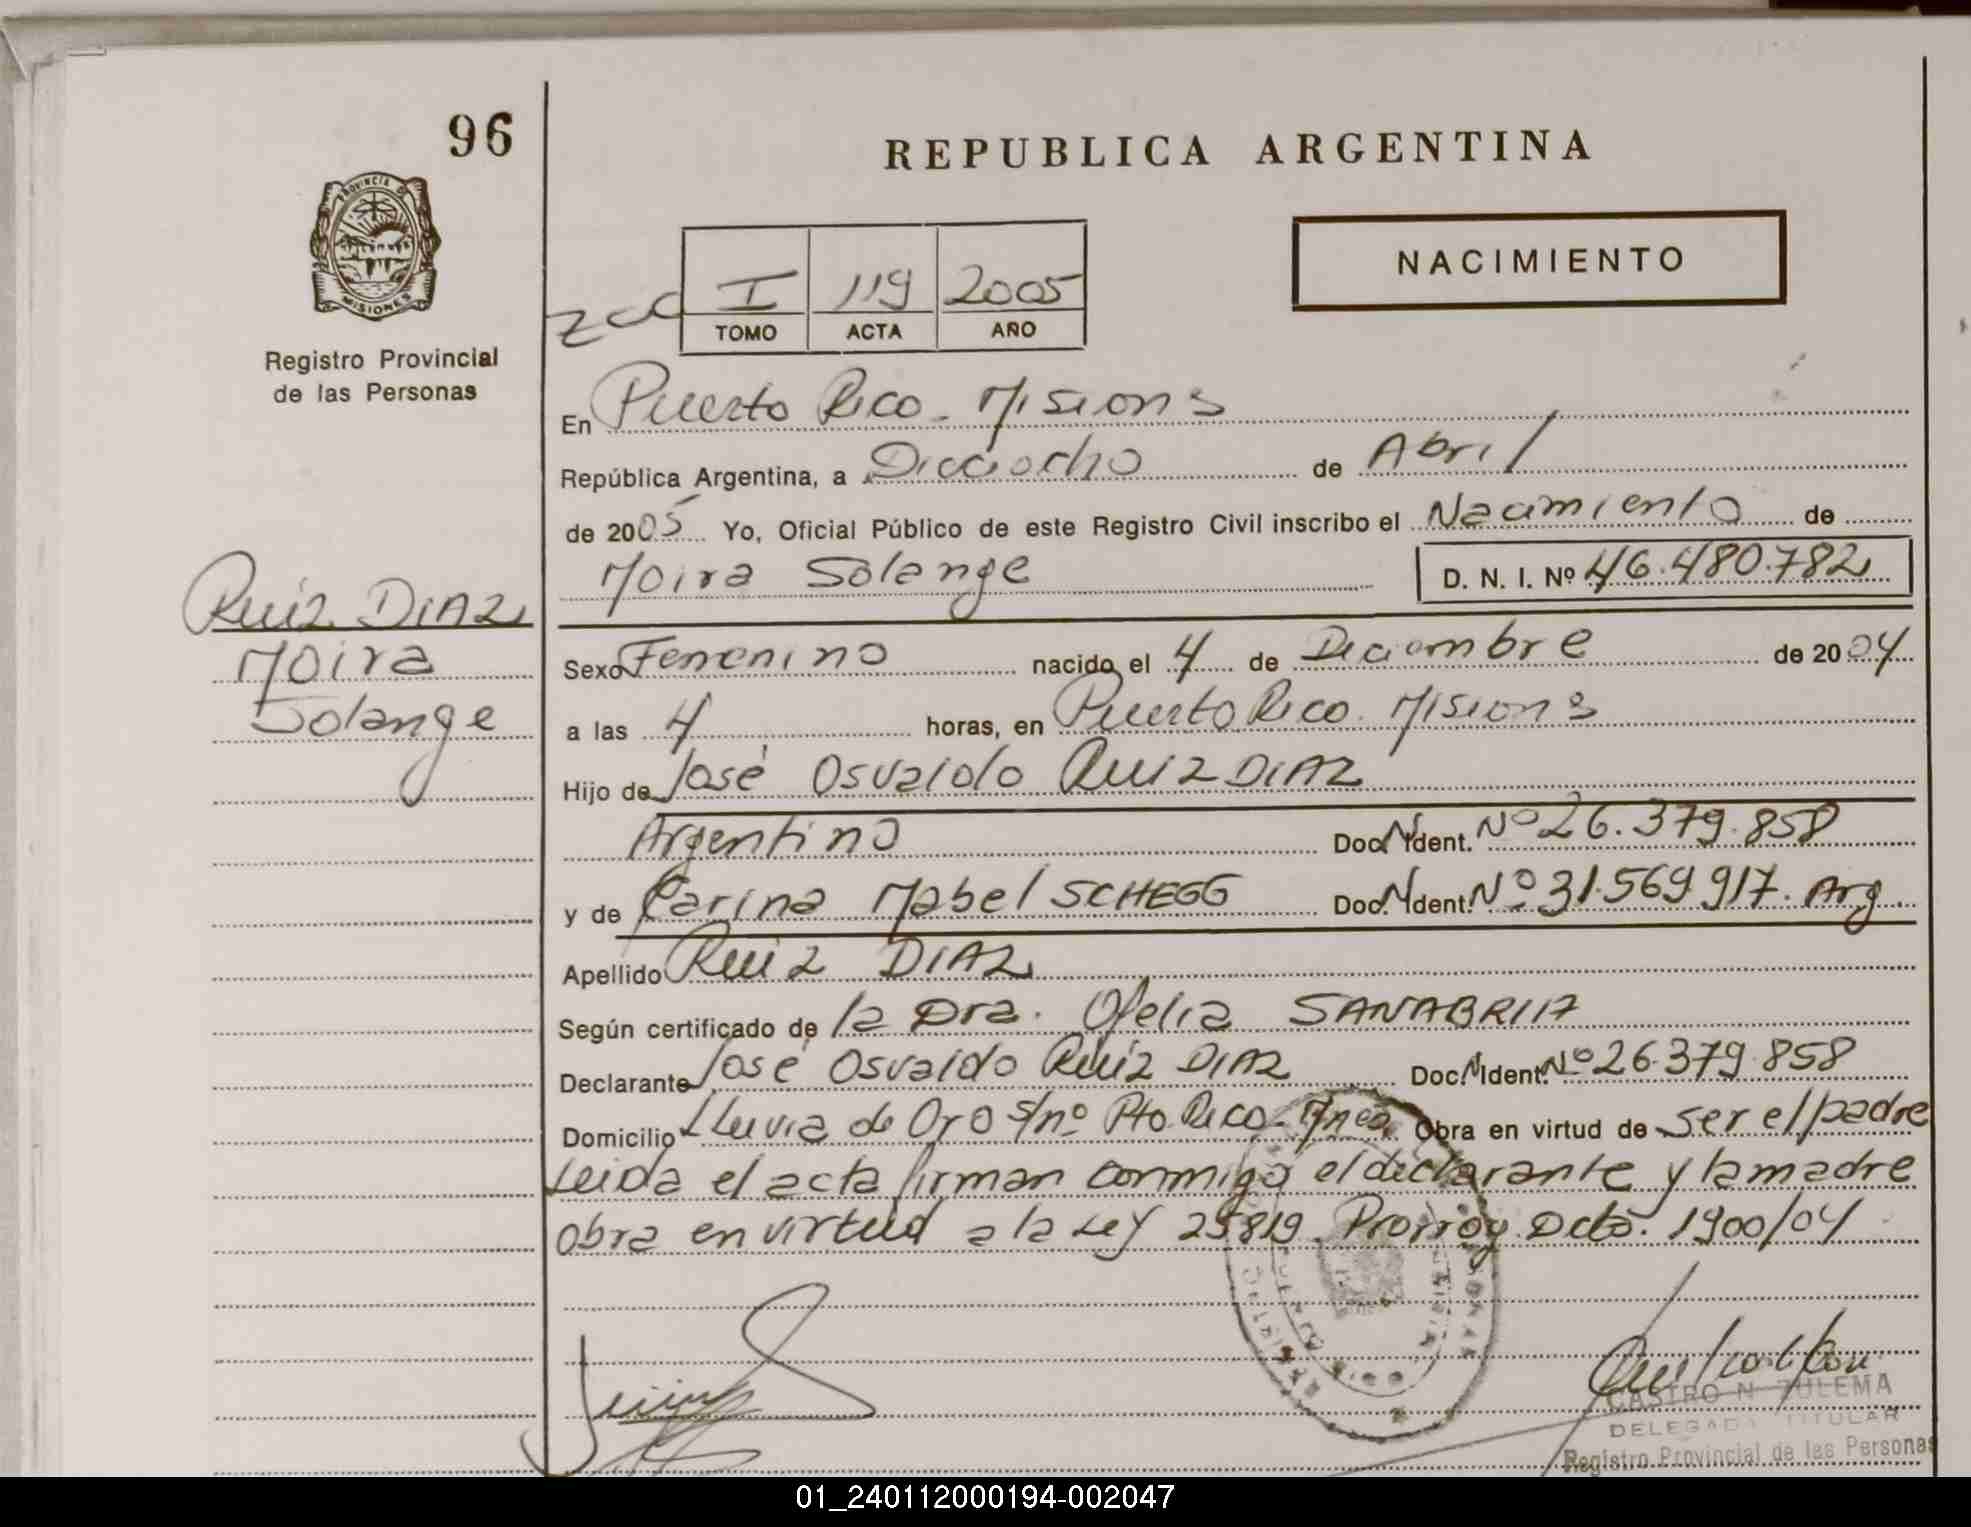 96
REPUBLICA ARGENTINA
PROVINCIA DE
MISIONES
Registro Provincial
de las Personas
I 119 2005
TOMO ACTA AÑO
NACIMIENTO
En Puerto Rico - Misions
República Argentina, a Dieciocho de Abril
de 2005 Yo, Oficial Público de este Registro Civil inscribo el Nacimiento de
Moira Solange D. N. I. Nº 46.480.782
Ruiz DIAZ
Moira
Solange
Sexo Femenino nacido el 4 de Diciembre de 2004
a las 4 horas, en Puerto Rico. Misions
Hijo de José Osvaldo Ruiz DIAZ
Argentino Doc. N. Ident. Nº 26.379.858
y de Carina Mabel SCHEGG Doc. N. Ident. Nº 31.569.917. Arg.
Apellido Ruiz DIAZ
Según certificado de la Dra. Ofelia SANABRIA
Declarante José Osvaldo Ruiz DIAZ Doc. N. Ident. Nº 26.379.858
Domicilio Lluvia de Oro s/nº Pto. Rico - Mnes. Obra en virtud de ser el padre
Leida el acta firman conmigo el declarante y la madre
obra en virtud a la Ley 25819. Prorrog. Dcto. 1900/04
CASTRO N. ZULEMA
DELEGADA TITULAR
Registro Provincial de las Personas
01_240112000194-002047